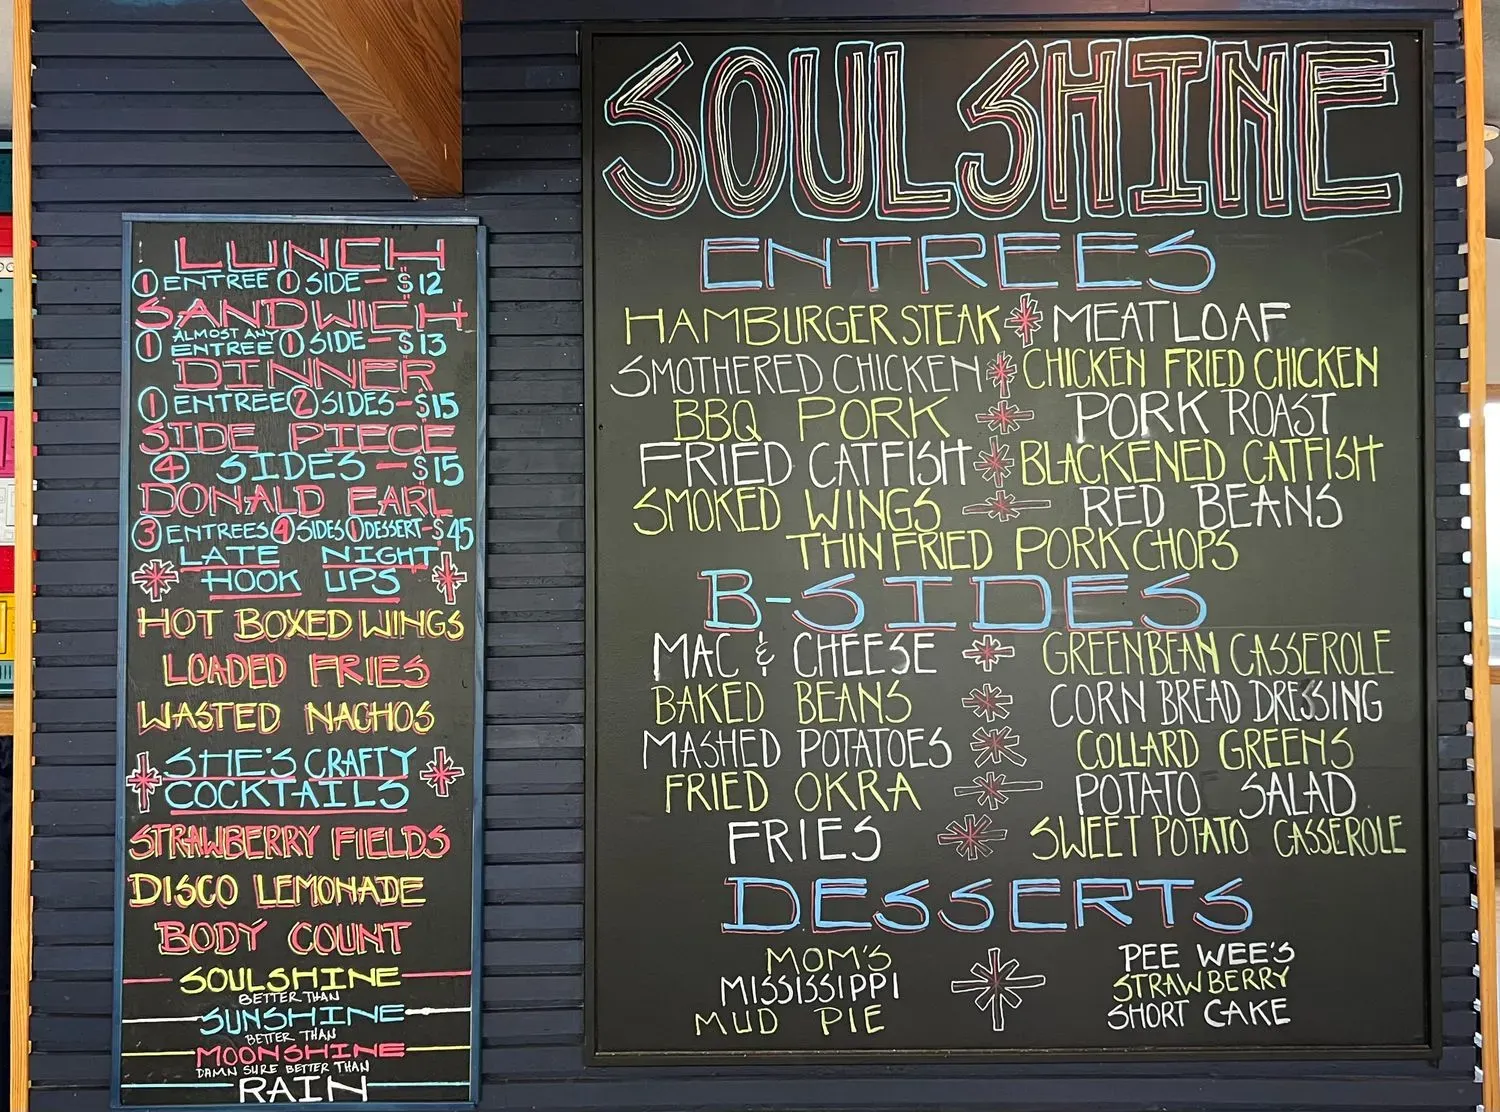 LUNCH
1 ENTREE 1 SIDE - $12
SANDWICH
1 ALMOST ANY ENTREE 1 SIDE - $13
DINNER
1 ENTREE 2 SIDES - $15
SIDE PIECE
4 SIDES - $15
DONALD EARL
3 ENTREES 4 SIDES 1 DESSERT - $45
LATE NIGHT
HOOK UPS
HOT BOXED WINGS
LOADED FRIES
WASTED NACHOS
SHE'S CRAFTY
COCKTAILS
STRAWBERRY FIELDS
DISCO LEMONADE
BODY COUNT
SOULSHINE
BETTER THAN
SUNSHINE
BETTER THAN
MOONSHINE
DAMN SURE BETTER THAN
RAIN
SOULSHINE
ENTREES
HAMBURGER STEAK * MEATLOAF
SMOTHERED CHICKEN * CHICKEN FRIED CHICKEN
BBQ PORK * PORK ROAST
FRIED CATFISH * BLACKENED CATFISH
SMOKED WINGS * RED BEANS
THIN FRIED PORK CHOPS
B-SIDES
MAC & CHEESE * GREENBEAN CASSEROLE
BAKED BEANS * CORN BREAD DRESSING
MASHED POTATOES * COLLARD GREENS
FRIED OKRA * POTATO SALAD
FRIES * SWEET POTATO CASSEROLE
DESSERTS
MOM'S
MISSISSIPPI
MUD PIE
PEE WEE'S
STRAWBERRY
SHORT CAKE